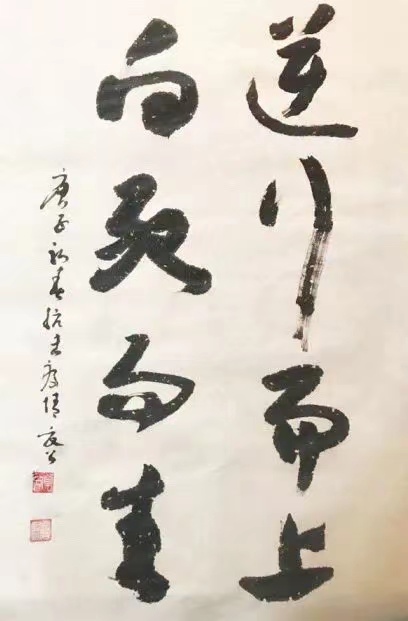 逆行而上
向死而生
庚子初春抗击疫情